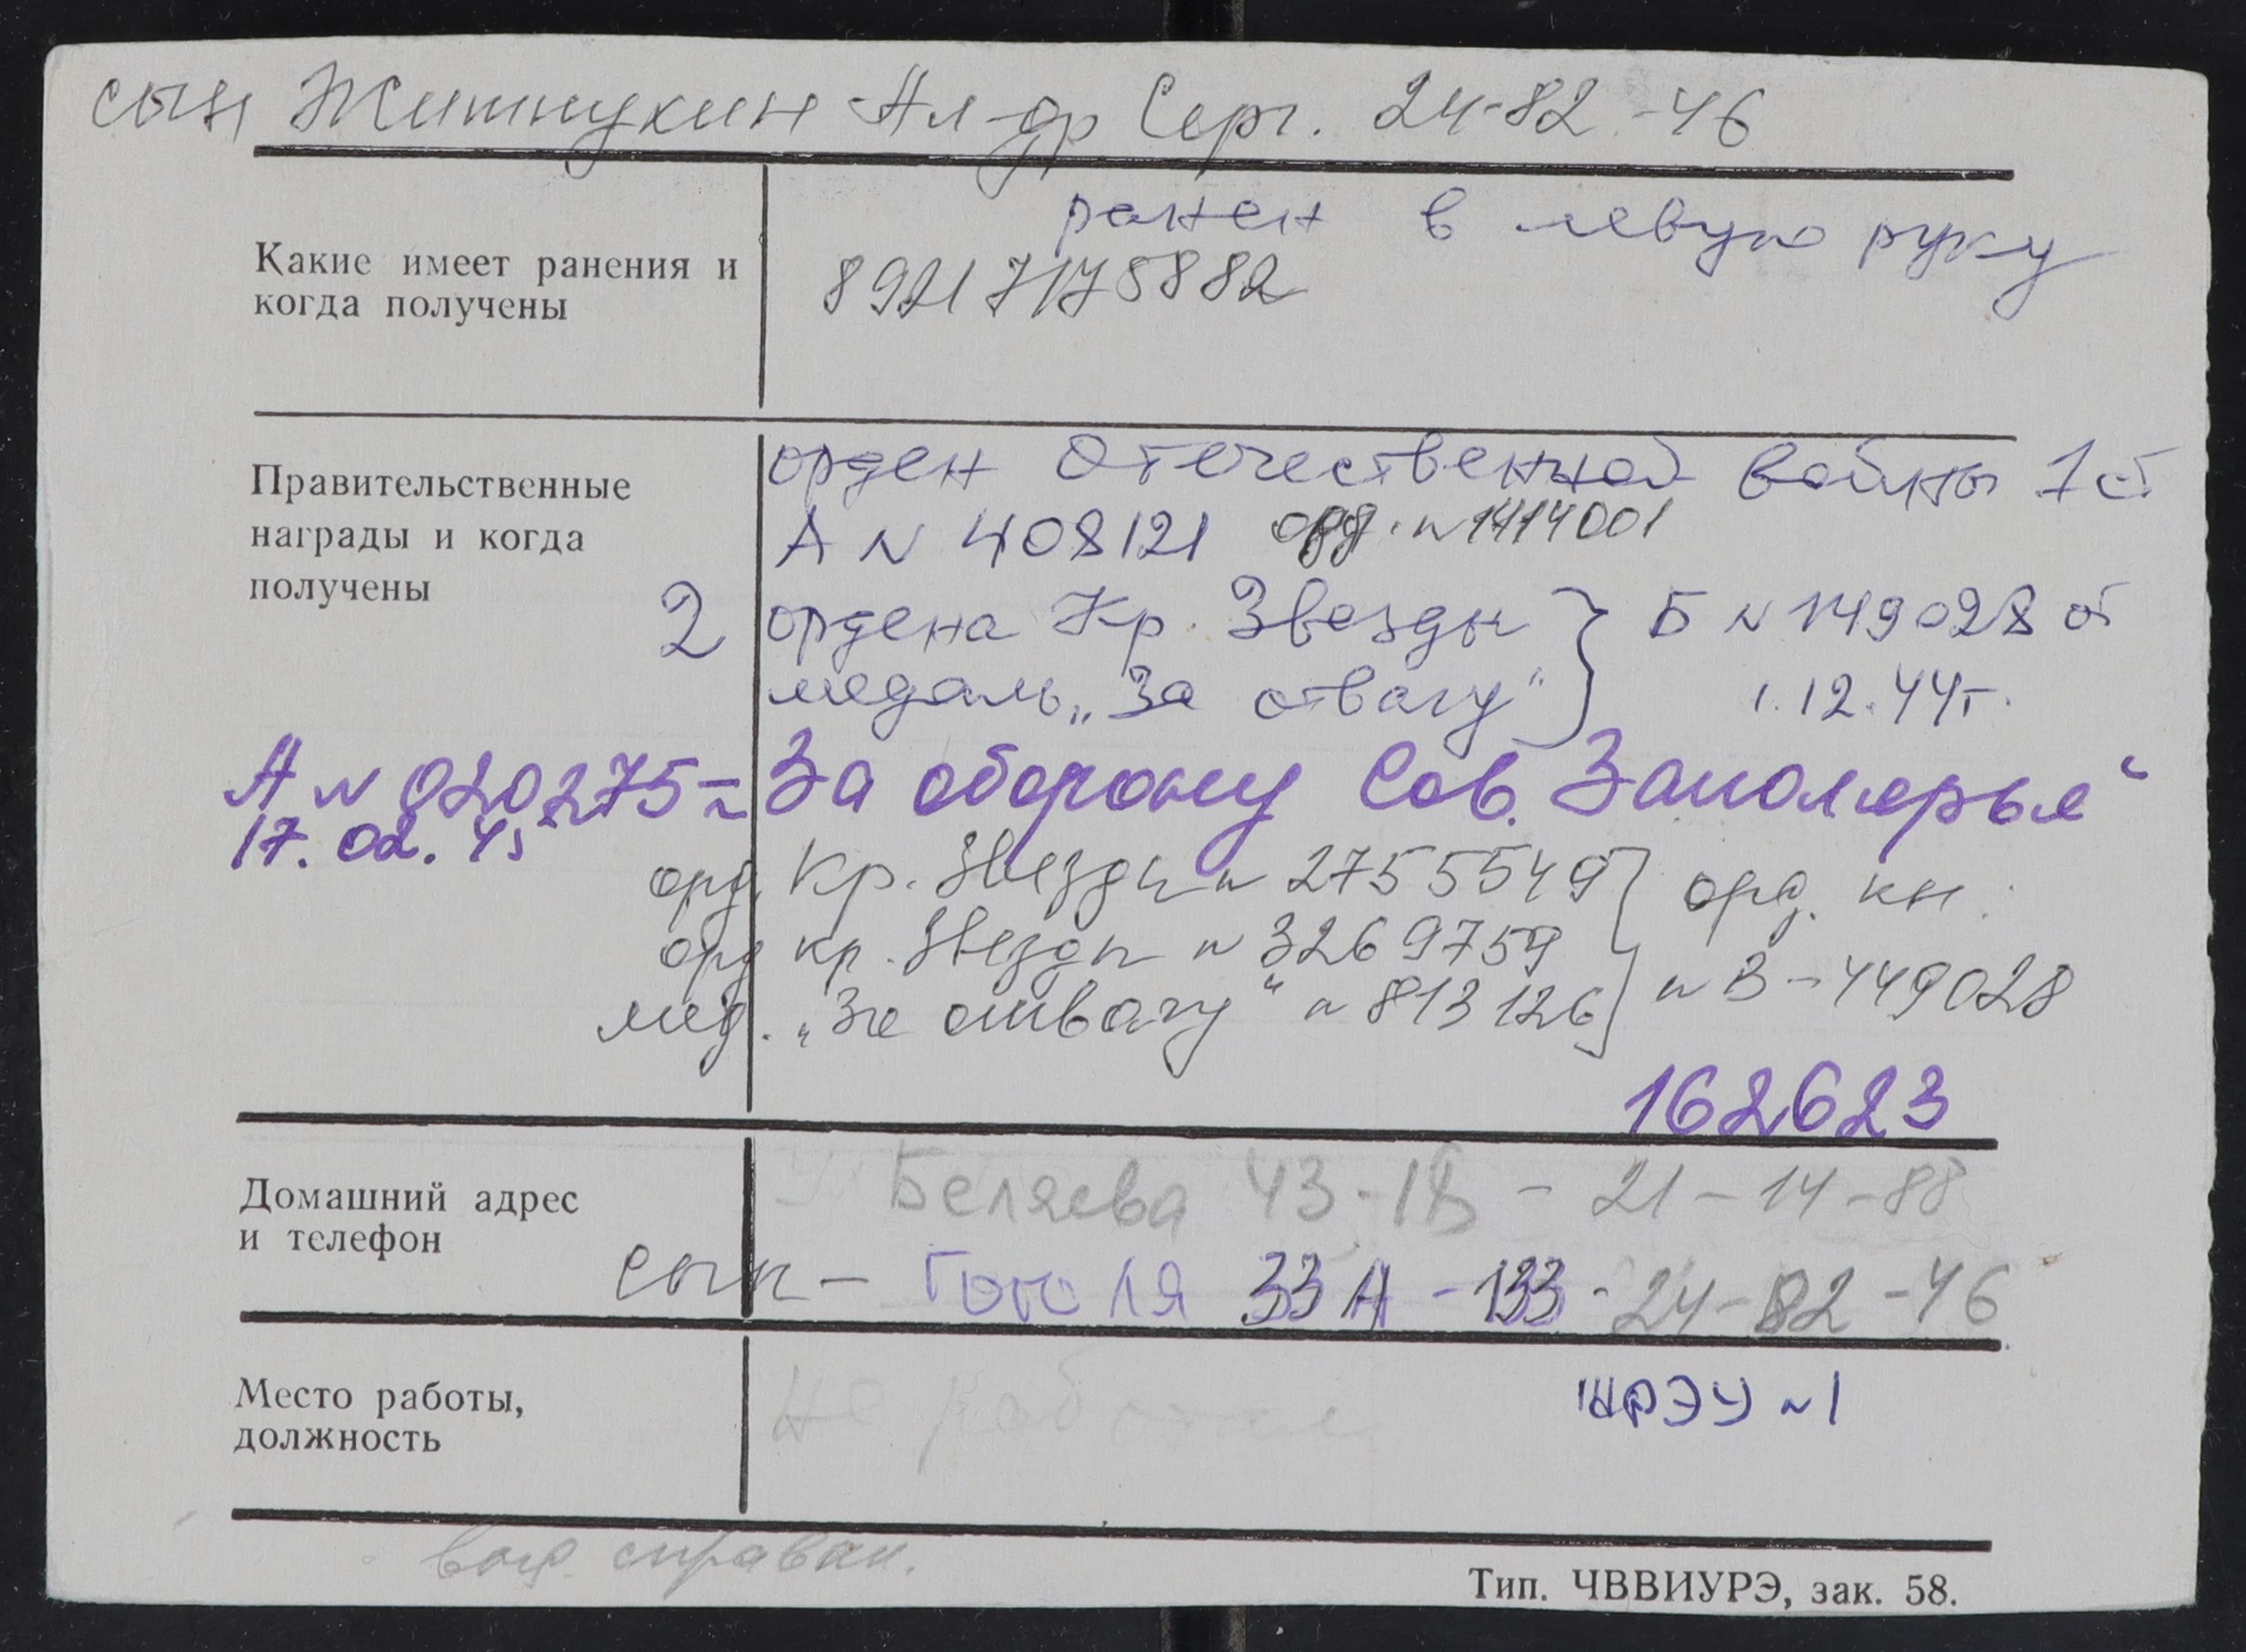 сын Житнухин Ал-др Серг. 24-82-46
ранен в левую руку
Какие имеет ранения и
когда получены
89217178882
Правительственные
награды и когда
получены
орден Отечественной войны 1 ст
А N 408121 орд. N 1414001
2 ордена Кр. Звезды } Б N 149028 от
медаль „За отвагу“ 1.12.44г.
А N 020275 – „За оборону Сов. Заполярья“
17.02.45
орд. Кр. Звезды N 2755549 } орд. кн.
орд кр. Звезды N 3269759
мед. „За отвагу“ N 813126 } N В-449028
162623
Домашний адрес
и телефон
Беляева 43-18 - 21-14-88
сын - Гоголя 33А - 133 - 24-82-46
Место работы,
должность
не работает
ЖРЭУ N 1
справки.
Тип. ЧВВИУРЭ, зак. 58.